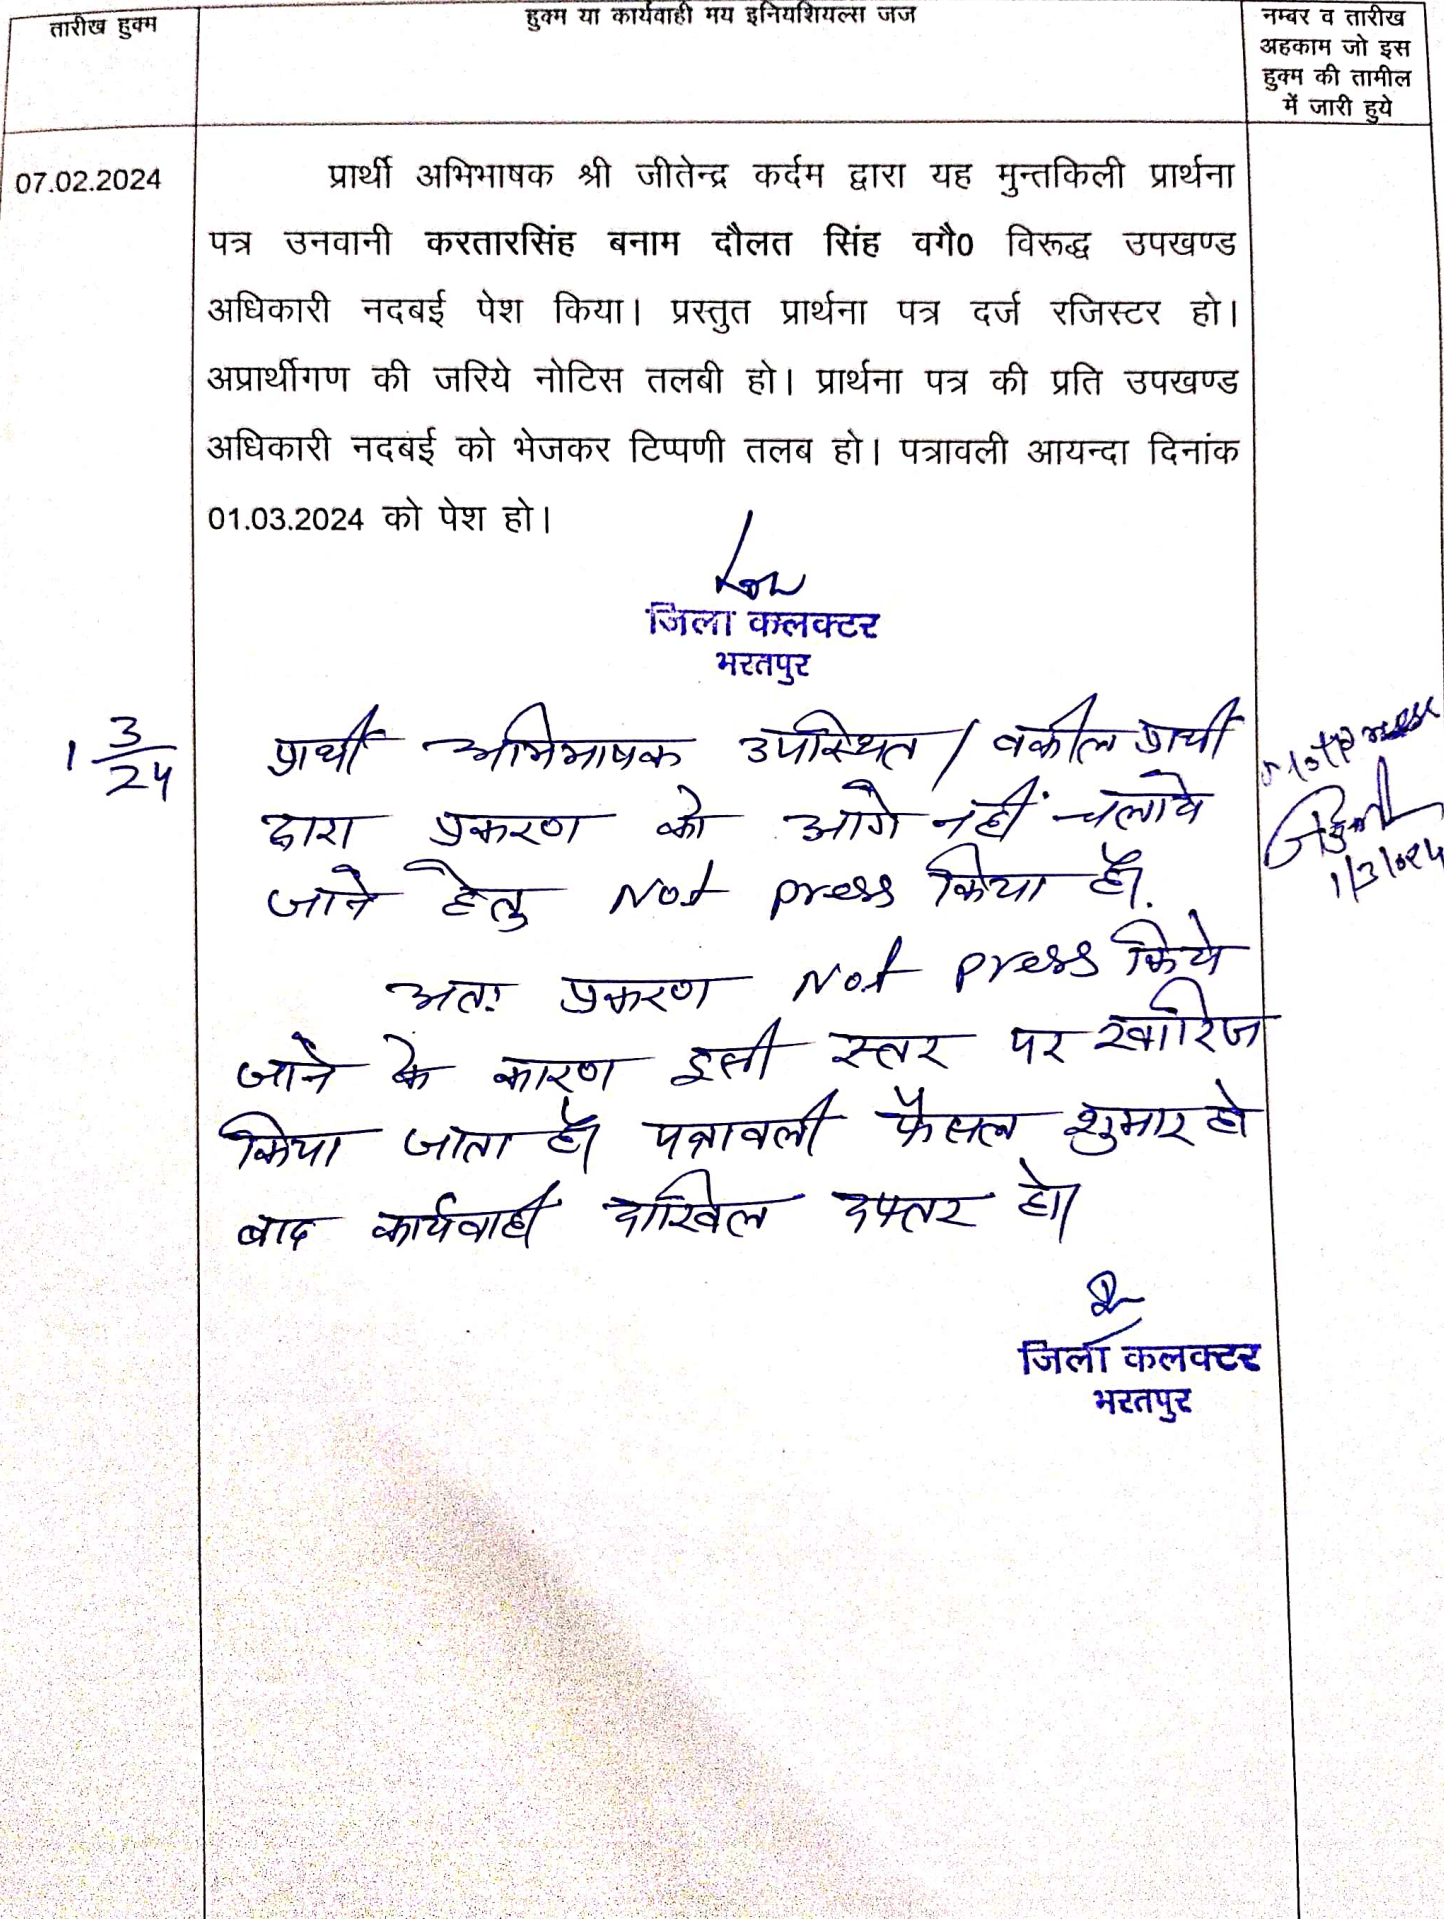 तारीख हुक्म
हुक्म या कार्यवाही मय इनियशियल्स जज
नम्बर व तारीख
अहकाम जो इस
हुक्म की तामील
में जारी हुये
07.02.2024
प्रार्थी अभिभाषक श्री जीतेन्द्र कर्दम द्वारा यह मुन्तकिली प्रार्थना
पत्र उनवानी करतारसिंह बनाम दौलत सिंह वगै0 विरूद्ध उपखण्ड
अधिकारी नदबई पेश किया। प्रस्तुत प्रार्थना पत्र दर्ज रजिस्टर हो।
अप्रार्थीगण की जरिये नोटिस तलबी हो। प्रार्थना पत्र की प्रति उपखण्ड
अधिकारी नदबई को भेजकर टिप्पणी तलब हो। पत्रावली आयन्दा दिनांक
01.03.2024 को पेश हो।
जिला कलक्टर
भरतपुर
1 3/24
प्रार्थी अभिभाषक उपस्थित / वकील प्रार्थी
द्वारा प्रकरण को आगे नहीं चलाये
जाने हेतु Not press किया है।
अतः प्रकरण Not press किये
जाने के कारण इसी स्तर पर खारिज
किया जाता है। पत्रावली फैसल शुमार हो
बाद कार्यवाही दाखिल दफ्तर हो।
Not press
1/3/2024
जिला कलक्टर
भरतपुर